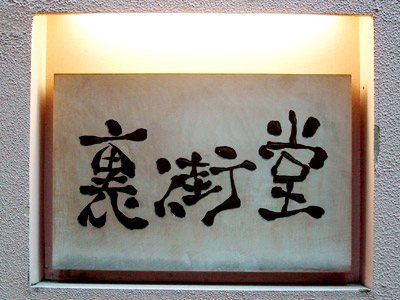 裏街堂